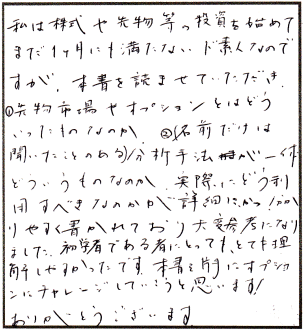 私は株式や先物等の投資を始めて
まだ1ヶ月にも満たないド素人なので
すが、本書を読ませていただき、
①先物市場やオプションとはどう
いったものなのか、②名前だけは
聞いたことのある分析手法が一体
どういうものなのか、実際にどう利
用すべきなのかが詳細にかつ分か
りやすく書かれており大変参考になり
ました。初学者である者にとっても、とても理
解しやすかったです。本書を片手にオプショ
ンにチャレンジしていこうと思います!
ありがとうございます